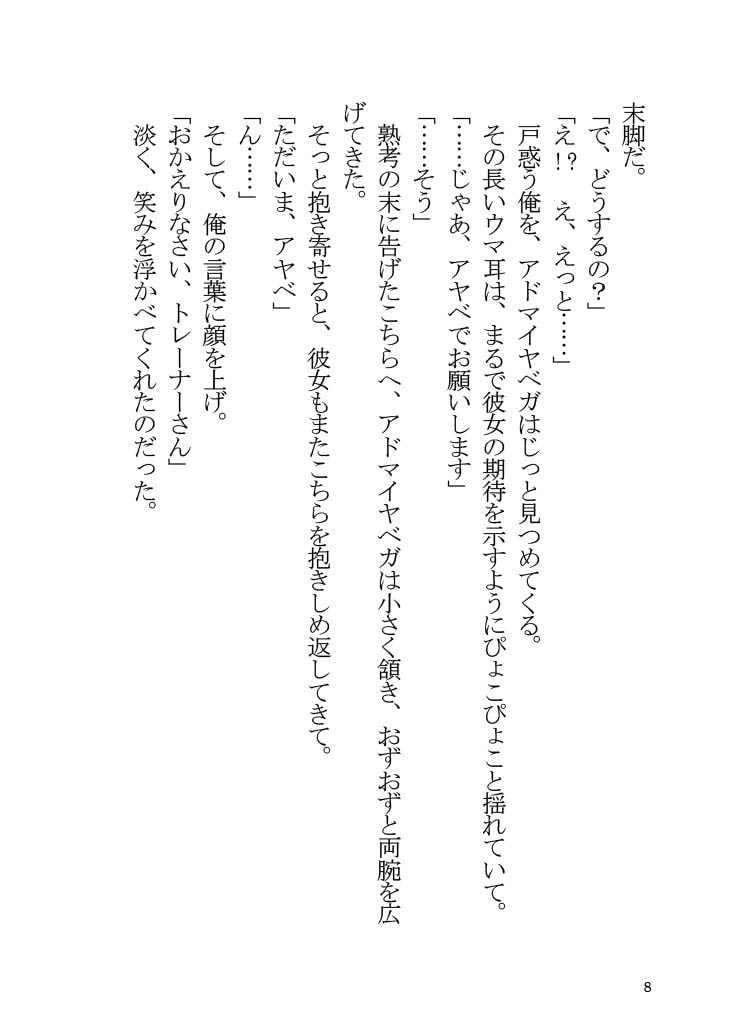 末脚だ。
「で、どうするの？」
「え!?　え、えっと……」
　戸惑う俺を、アドマイヤベガはじっと見つめてくる。
　その長いウマ耳は、まるで彼女の期待を示すようにぴょこぴょこと揺れていて。
「……じゃあ、アヤベでお願いします」
「……そう」
　熟考の末に告げたこちらへ、アドマイヤベガは小さく頷き、おずおずと両腕を広
げてきた。
　そっと抱き寄せると、彼女もまたこちらを抱きしめ返してきて。
「ただいま、アヤベ」
「ん……」
　そして、俺の言葉に顔を上げ。
「おかえりなさい、トレーナーさん」
　淡く、笑みを浮かべてくれたのだった。
8